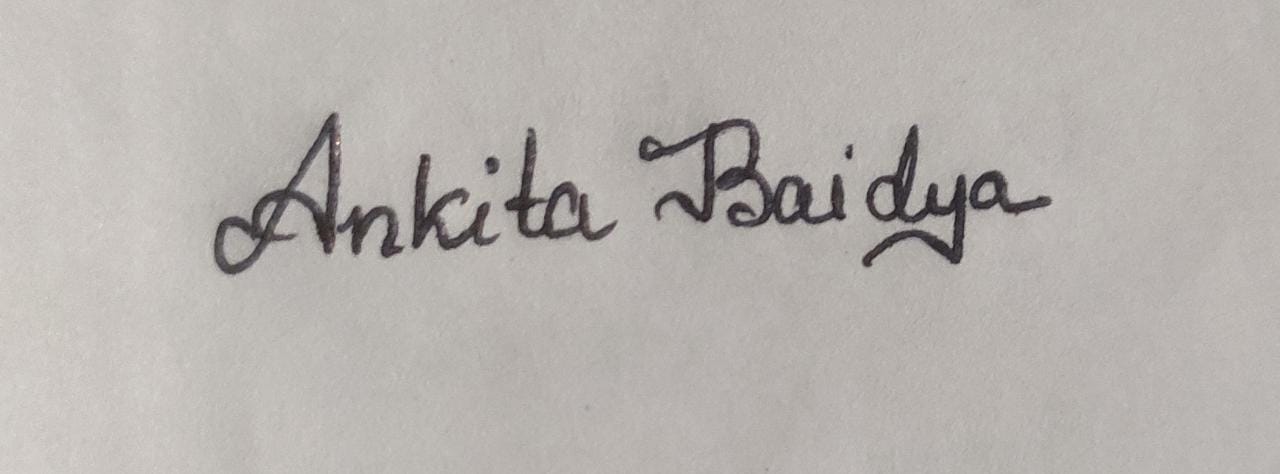 Ankita Baidya